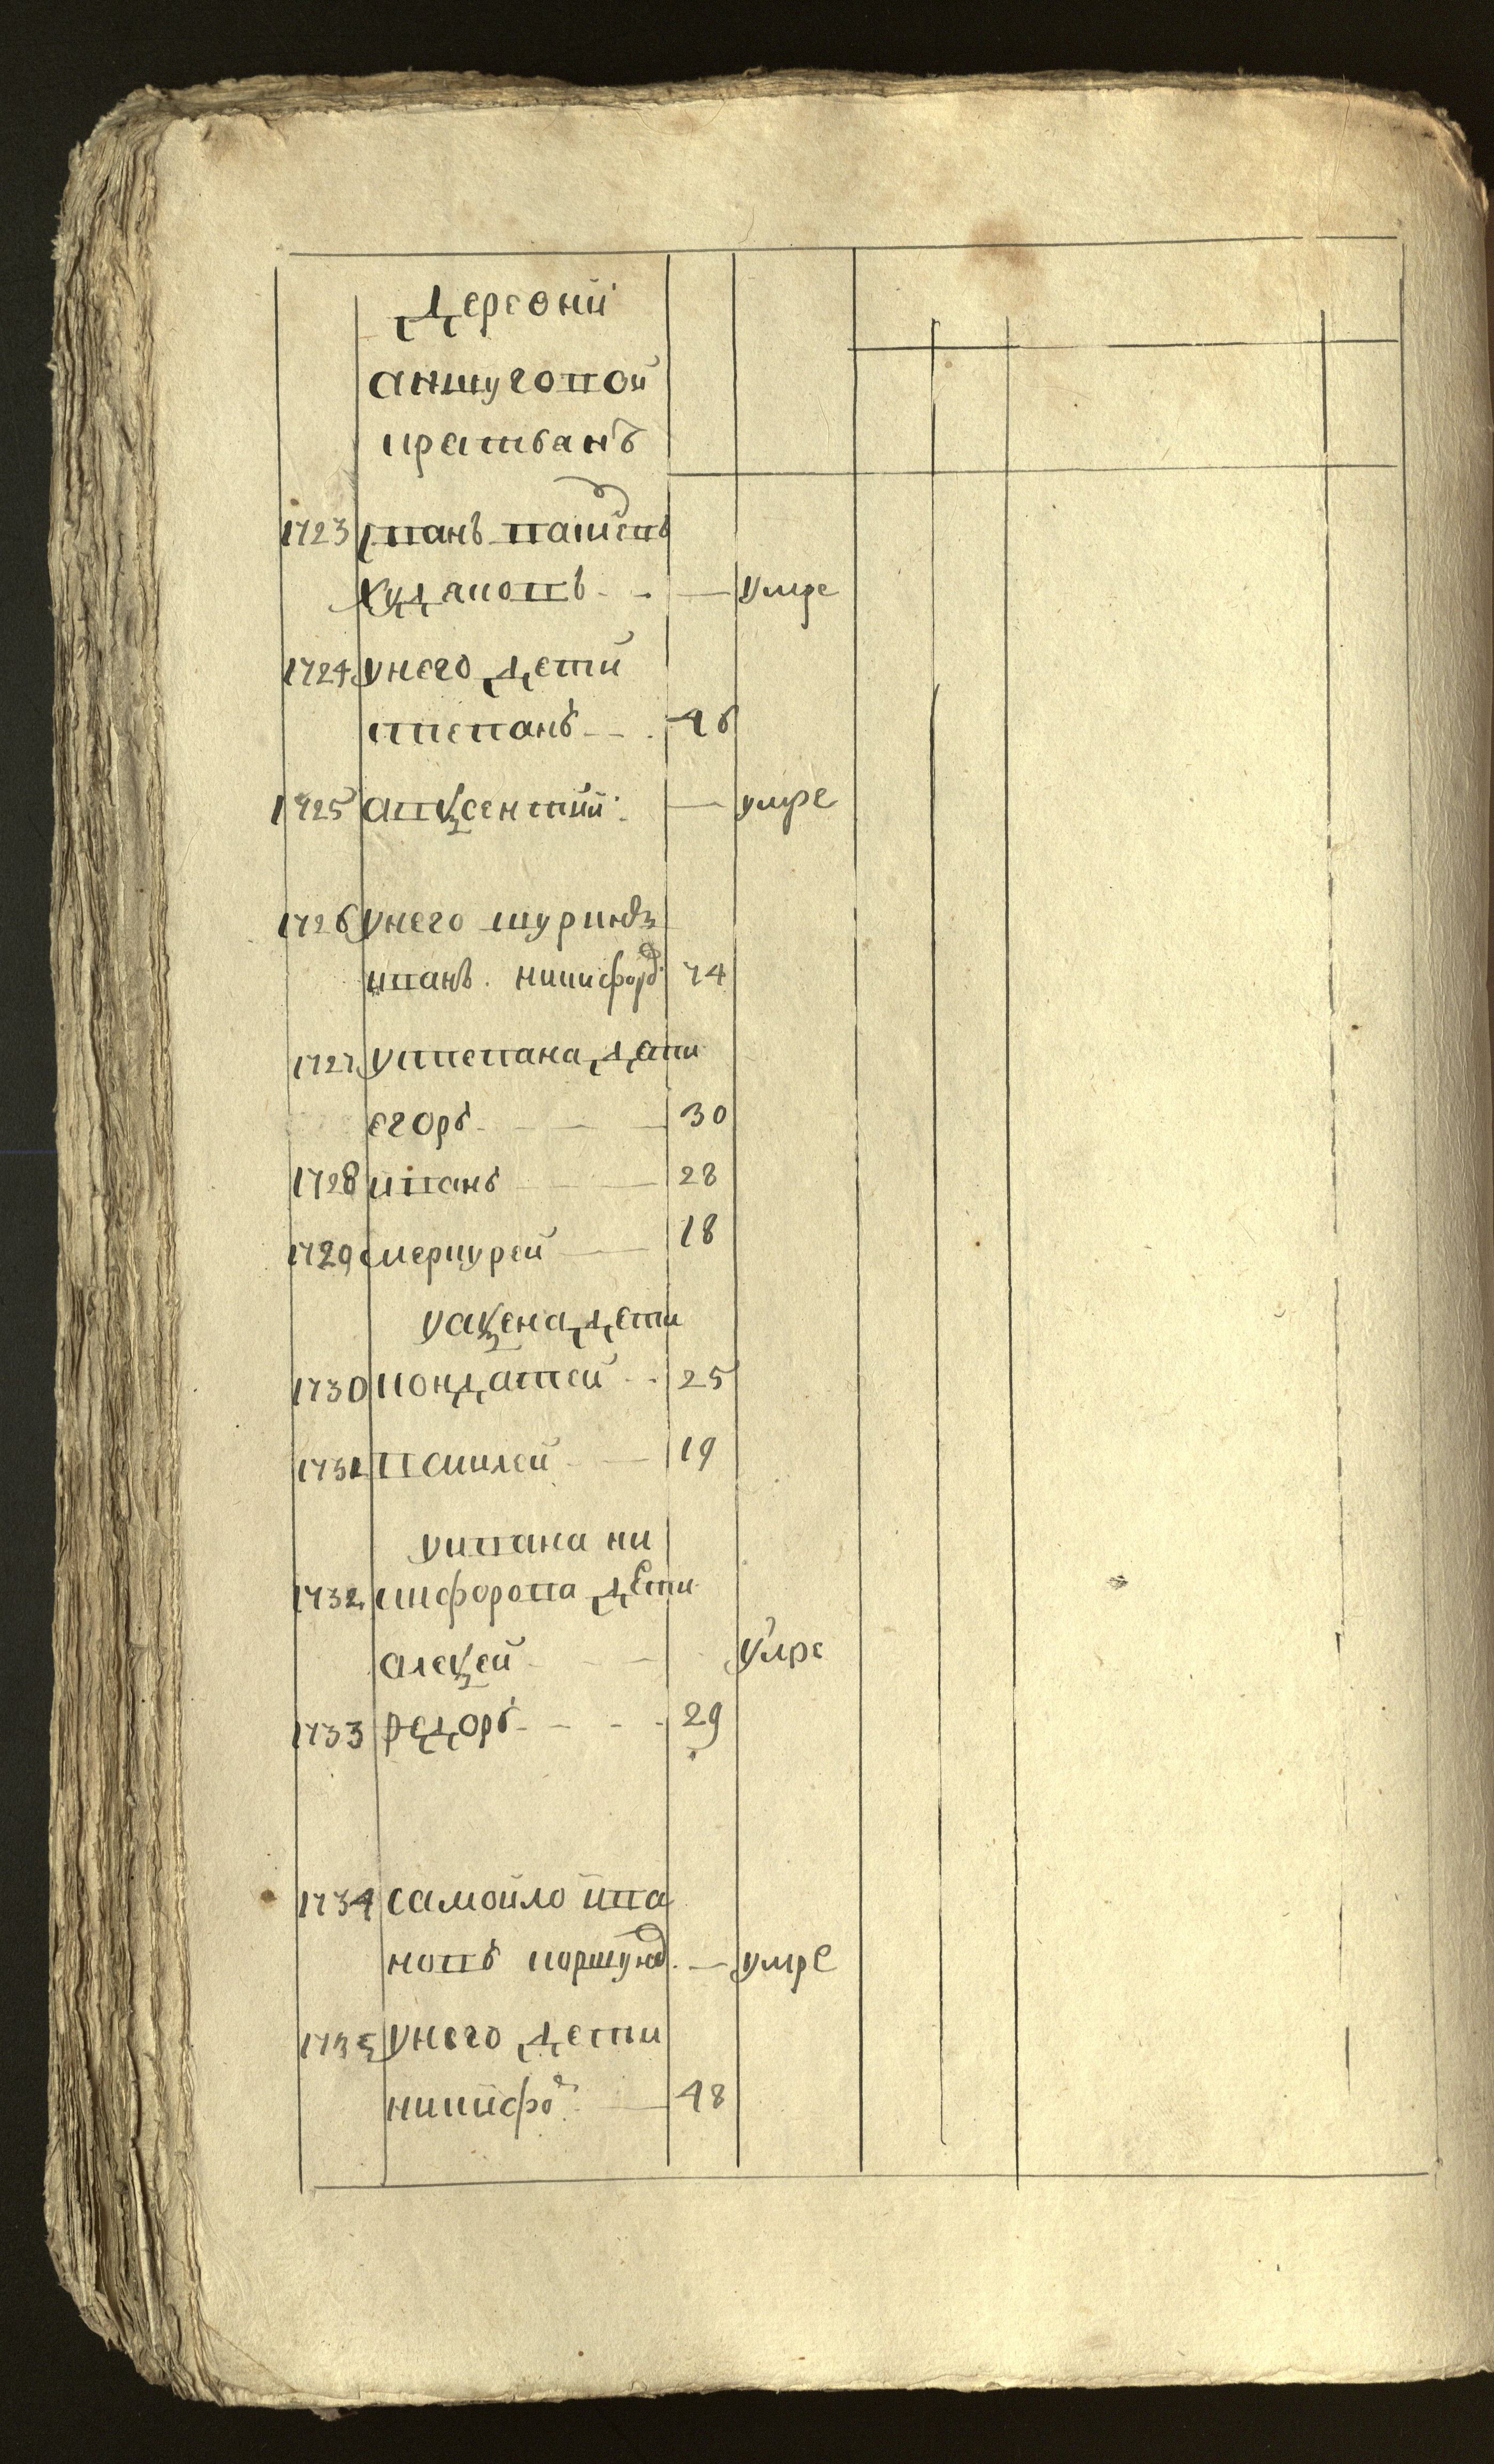 Деревни
аншуговой
крестьянъ
1723 иванъ павловъ
худяковъ - - — умре
1724 унего дети
степанъ - - . 46
1725 авксентий — умре
1726 унего шуринъ
иванъ никифоровъ 74
1727 устепана дети
егоръ - — — 30
1728 иванъ - - — 28
1729 меркурей — 18
уаксена дети
1730 кондатей - - 25
1731 василей - — 19
уивана ни
1732 кифорова дети
алексей - - — умре
1733 федоръ - - - - 29
1734 самойло ива
новъ коршунъ — умре
1735 унего дети
никифоръ — 48